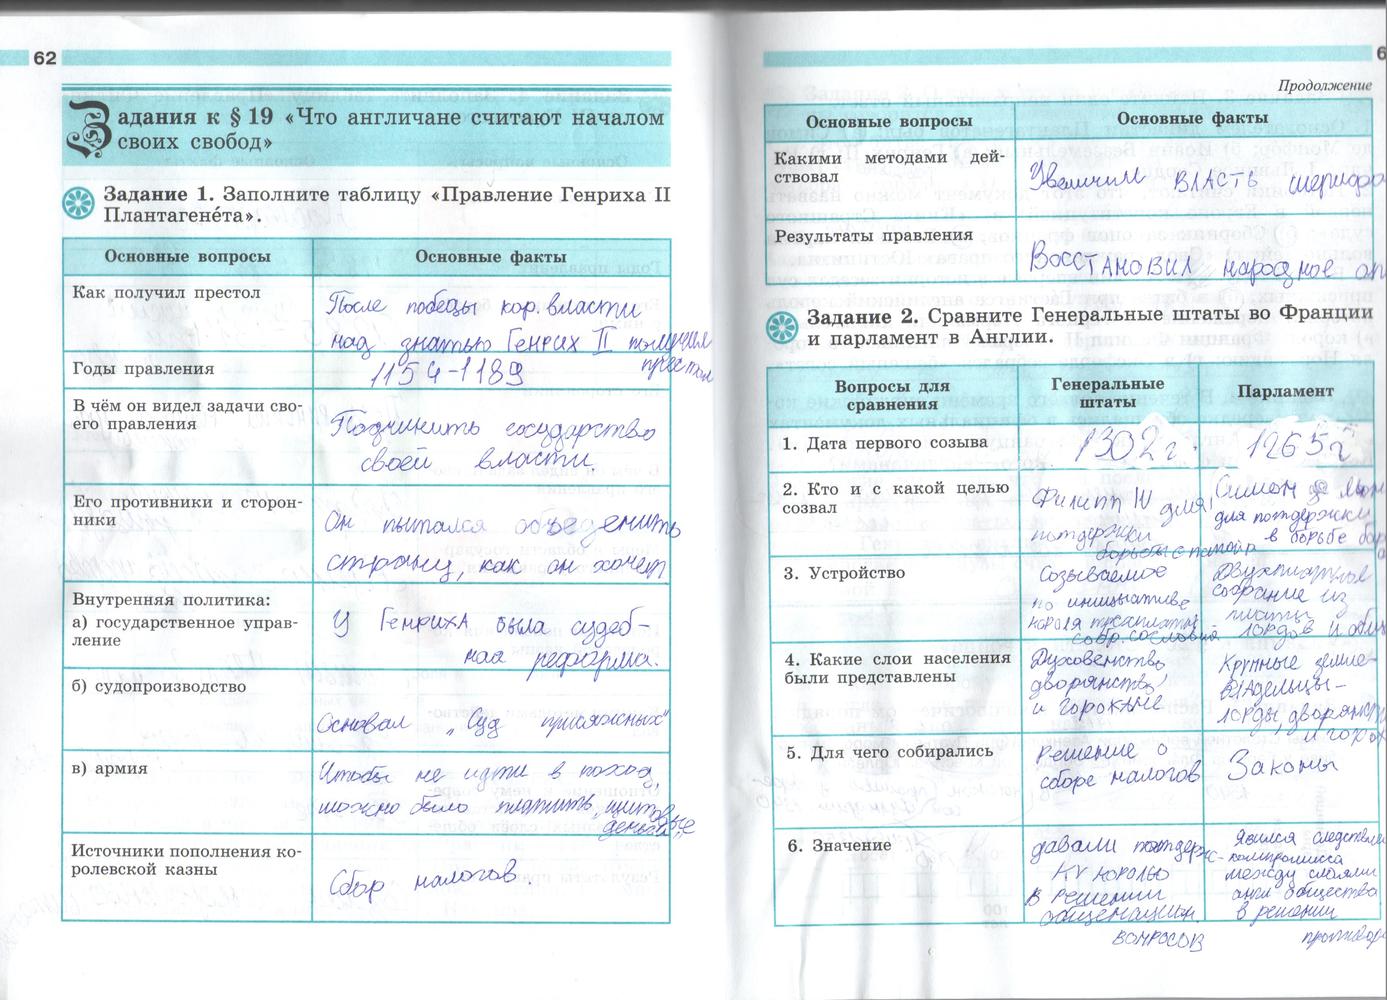 62
Задания к § 19 «Что англичане считают началом
своих свобод»
Задание 1. Заполните таблицу «Правление Генриха II
Плантагене́та».
Основные вопросы
Основные факты
Как получил престол
После победы кор. власти
над знатью Генрих II получил
престол
Годы правления
1154-1189
В чём он видел задачи сво-
его правления
Подчинить государство
своей власти
Его противники и сторон-
ники
Он пытался объеденить
страну, как он хочет
Внутренняя политика:
а) государственное управ-
ление
У Генриха была судеб-
ная реформа.
б) судопроизводство
Основал „Суд присяжных"
в) армия
Чтобы не идти в поход,
можно было платить „щитовые
деньги"
Источники пополнения ко-
ролевской казны
Сбор налогов.
6
Продолжение
Основные вопросы
Основные факты
Какими методами дей-
ствовал
Увеличил власть шерифов
Результаты правления
Восстановил народное оп
Задание 2. Сравните Генеральные штаты во Франции
и парламент в Англии.
Вопросы для
сравнения
Генеральные
штаты
Парламент
1. Дата первого созыва
1302 г.
1265 г
2. Кто и с какой целью
созвал
Филипп IV для
потдержки
борьбы с папой
Симон де Мон
для потдержки
в борьбе
3. Устройство
Созываемое
по инициативе
короля
собр. сословий
собрание из
палаты
лордов и общ
4. Какие слои населения
были представлены
Духовенство,
дворянство,
и горожане
Крупные земле-
владельцы-
лорды, дворяне
и горож
5. Для чего собирались
решение о
сборе налогов
Законы
6. Значение
давали потдерж-
ку королю
в решении
общенацион.
вопросов
явился следствием
компромисса
между слоями
англ общества
в решении
противор